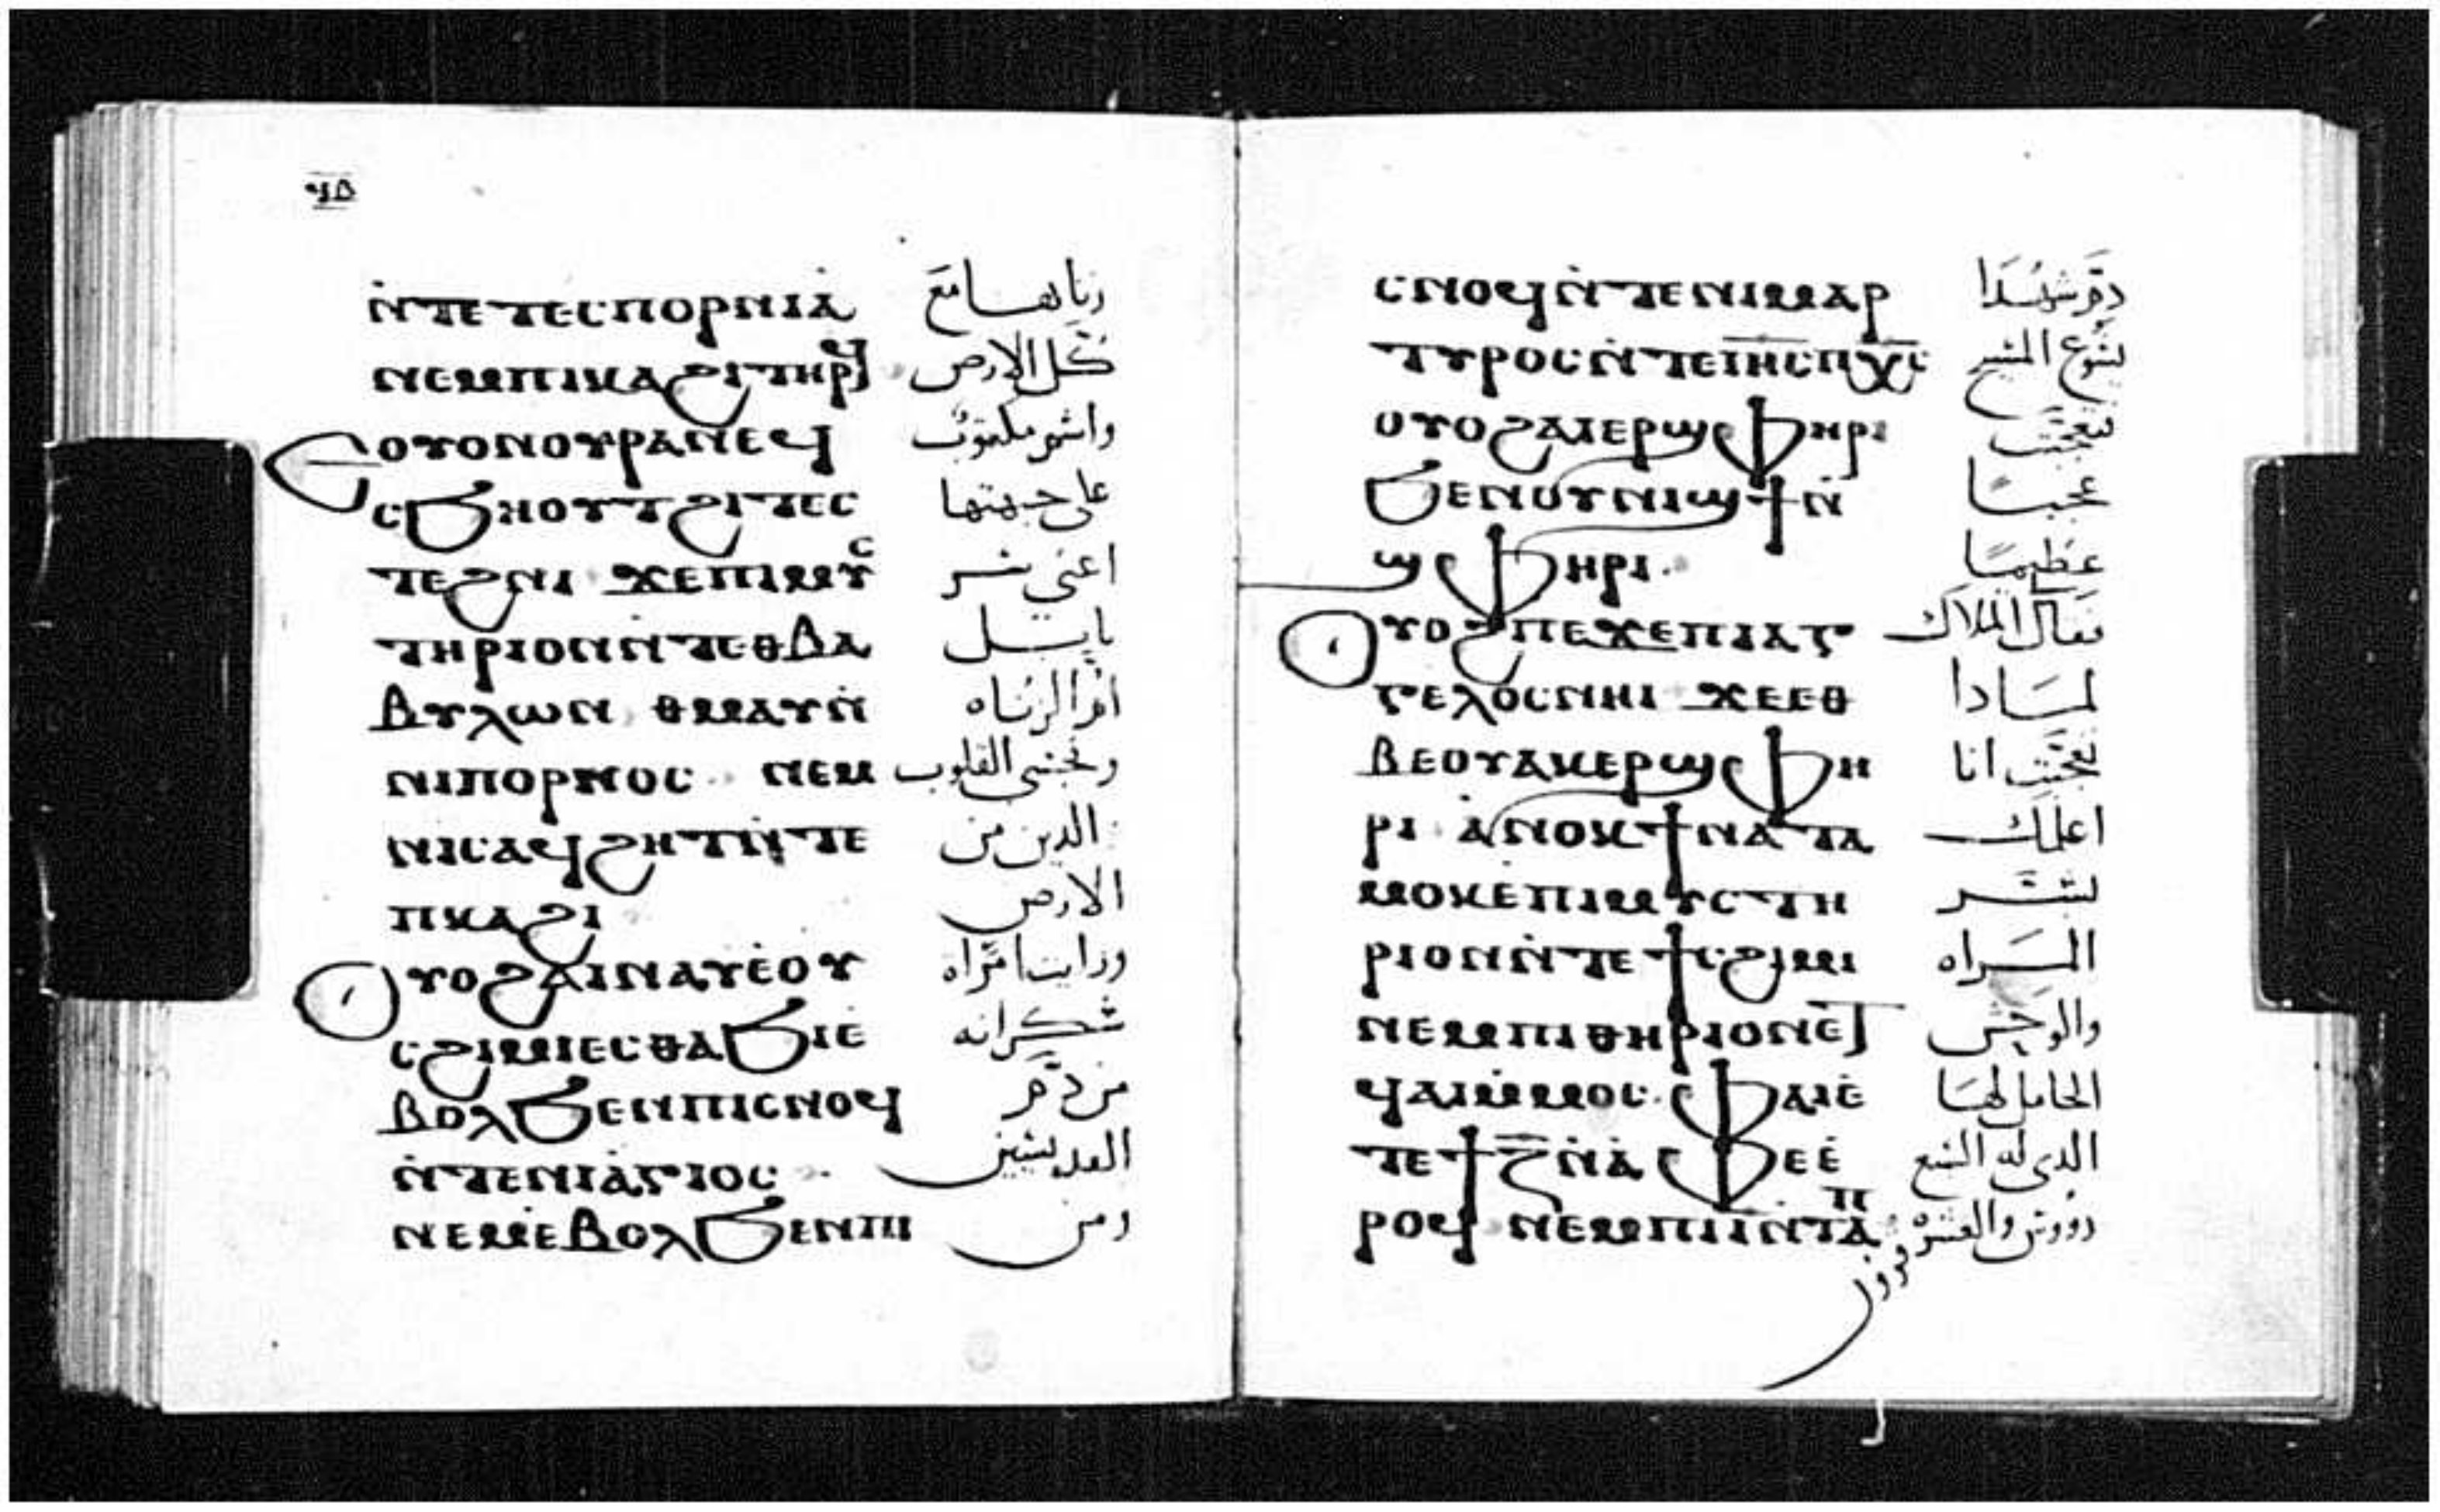 ϥⲇ
ⲛ̀ⲧⲉⲧⲉⲥⲡⲟⲣⲛⲓⲁ̀ زناها مع
ⲛⲉⲙⲡⲓⲕⲁϩⲓⲧⲏⲣϥ كل الارض
ⲉⲟⲩⲟⲛⲟⲩⲣⲁⲛⲉϥ واسم مكتوب
ⲥϧⲏⲟⲩⲧϩⲓⲧⲉⲥ على جبهتها
ⲧⲉϩⲛⲓ ϫⲉⲡⲓⲙⲩⲥ اعني سر
ⲧⲏⲣⲓⲟⲛⲛ̀ⲧⲉⲑⲃⲁ بابل
ⲃⲩⲗⲱⲛ ⲑⲙⲁⲩⲛ̀ ام الزناه
ⲛⲓⲡⲟⲣⲛⲟⲥ ⲛⲉⲙ القلوب
ⲛⲓⲥⲁϥϩⲏⲧⲛ̀ⲧⲉ الدين من
ⲡⲕⲁϩⲓ الارض
ⲟⲩⲟϩⲁⲓⲛⲁⲩⲉ̀ⲟⲩ ورايت امراه
ⲥϩⲓⲙⲓⲉⲥⲑⲁϧⲓⲉ̀ سكرانه
ⲃⲟⲗϧⲉⲛⲡⲓⲥⲛⲟϥ من دم
ⲛ̀ⲧⲉⲛⲓⲁ̀ⲅⲓⲟⲥ القديسين
ⲛⲉⲙⲉⲃⲟⲗϧⲉⲛⲡⲓ ومن
ⲥⲛⲟϥⲛ̀ⲧⲉⲛⲓⲙⲁⲣ دم شهدا
ⲧⲩⲣⲟⲥⲛ̀ⲧⲉⲓⲏⲥⲡⲭⲥ يسوع المسيح
ⲟⲩⲟϩⲁⲓⲉⲣϣⲫⲏⲣⲓ فتعجبت
ϧⲉⲛⲟⲩⲛⲓϣϯⲛ̀ عجبا
ϣⲫⲏⲣⲓ عظيما
ⲟⲩⲟϩⲡⲉϫⲉⲡⲓⲁⲅ فقال الملاك
ⲅⲉⲗⲟⲥⲛⲏⲓ ϫⲉⲉⲑ لمادا
ⲃⲉⲟⲩⲁⲕⲉⲣϣⲫⲏ تعجبت انا
ⲣⲓ ⲁ̀ⲛⲟⲕϯⲛⲁⲧⲁ اعلمك
ⲙⲟⲕⲉ̀ⲡⲓⲙⲩⲥⲧⲏ بسر
ⲣⲓⲟⲛⲛ̀ⲧⲉϯⲥϩⲓⲙⲓ المراه
ⲛⲉⲙⲡⲓⲑⲏⲣⲓⲟⲛⲉⲧ والوحش
ϥⲁⲓⲙ̀ⲙⲟⲥ ⲫⲁⲓⲉ̀ الحامل لها
ⲧⲉϯⲍ̅ⲛ̀ⲁ̀ⲫⲉⲉ̀ الدي له السبع
ⲣⲟϥ ⲛⲉⲙⲡⲓⲓ̅ⲛ̀ⲧⲁⲡ رووس والعشره قرون